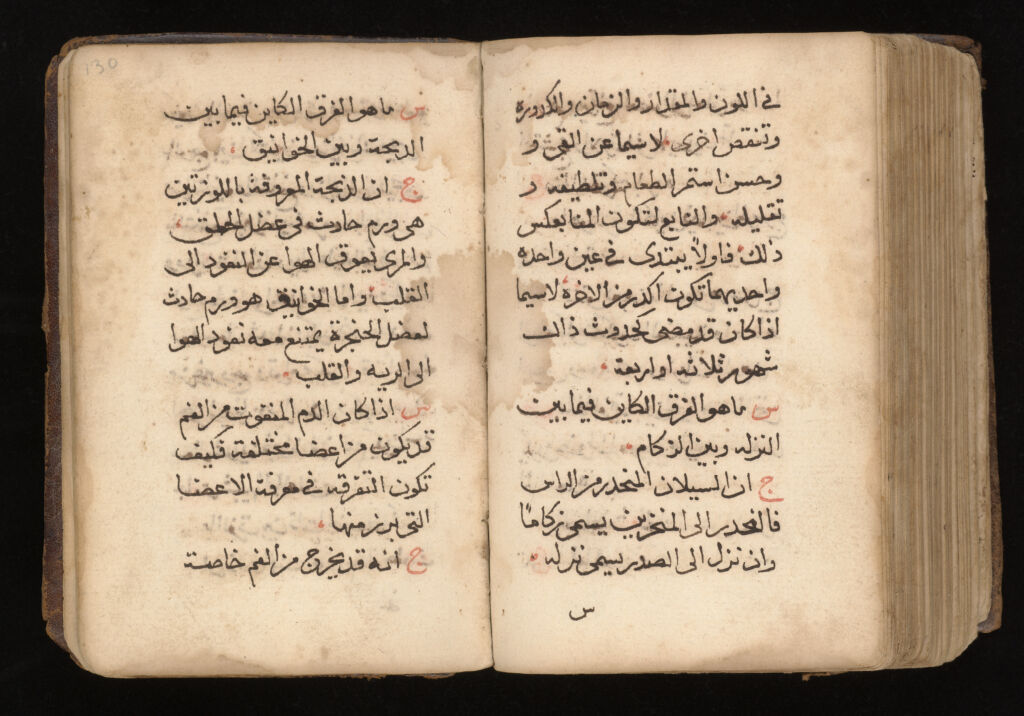 في اللون والمقدار والزمان والكدوره
وتنقص اخرى لاسيما عن القي و
وحسن استمر الطعام وتلطيفه و
تقليله والتابع لتكون المتابعكس
ذلك فاولاً يبتدى في عين واحده
واحديهما تكون اكدر من الاخره لاسيما
اذا كان قد مضى لحدوث ذلك
شهور ثلاثه او اربعة
س ما هو الفرق الكاين فيما بين
النزله وبين الزكام
ج ان السيلان المنحدر من الراس
فالمنحدر الى المنخرين يسمى زكامًا
وان نزل الى الصدر يسمى نزله
س
130
س ما هو الفرق الكاين فيما بين
الذبحة وبين الخوانيق
ج ان الذبحة المعروفة باللوزتين
هي ورم حادث في عضل الحلق
والمرى يعوق الهوا عن النفود الى
القلب واما الخوانيق هو ورم حادث
لعضل الحنجرة يمتنع معه نفود الهوا
الى الريه والقلب
س اذا كان الدم المنفوت من الفم
قد يكون من اعضا مختلفة فكيف
تكون التفرقه في معرفة الاعضا
التي برز منها
ج انه قد يخرج من الفم خاصة